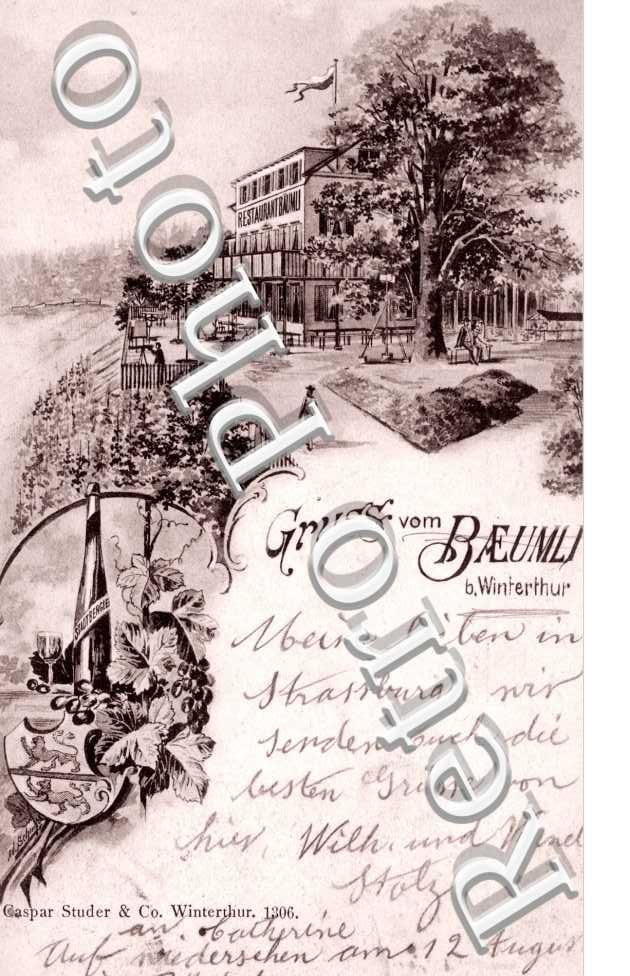 RESTAURANT BÄUMLI
Gruss vom BÆUMLI
b. Winterthur
STADTBERGER
Meine lieben in
Strassburg, wir
senden euch die
besten Grüsse von
hier, Wilh. und
Stolz
Caspar Studer & Co. Winterthur. 1306.
an Catherine
Auf wiedersehen am 12 August
Retro Photo